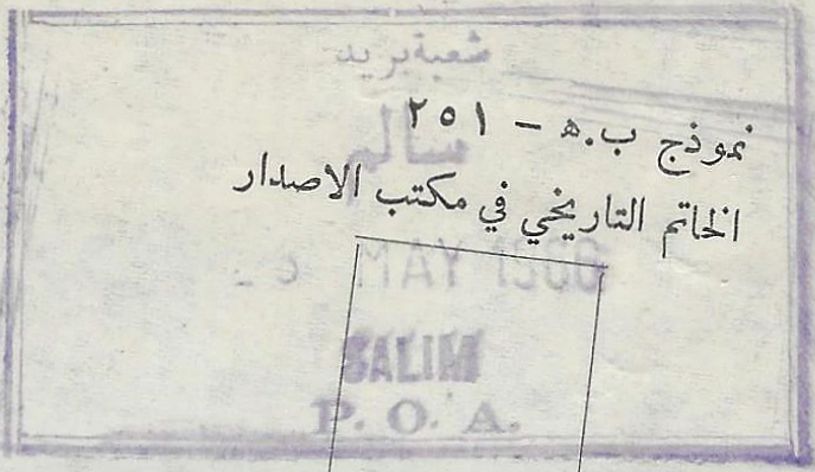 شعبة بريد
نموذج ب.ه - ٢٥١
سالم
الخاتم التاريخي في مكتب الاصدار
MAY
SALIM
P. O. A.